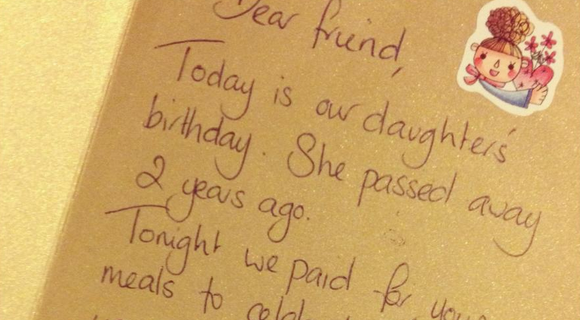 Dear friend,
Today is our daughters'
birthday. She passed away
2 years ago.
Tonight we paid for your
meals to